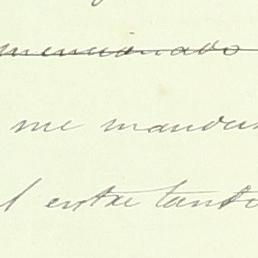 mencionado
me mandur
l entretanto